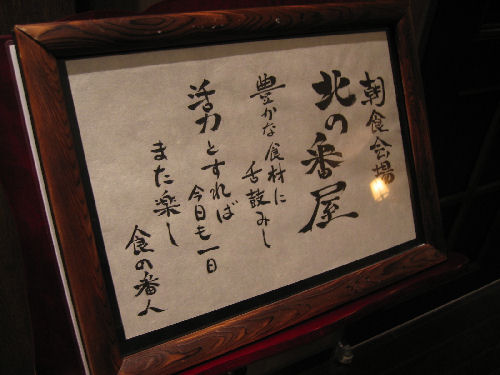 朝食会場
北の番屋
豊かな食材に
舌鼓みし
活力とすれば
今日も一日
また楽し
食の番人